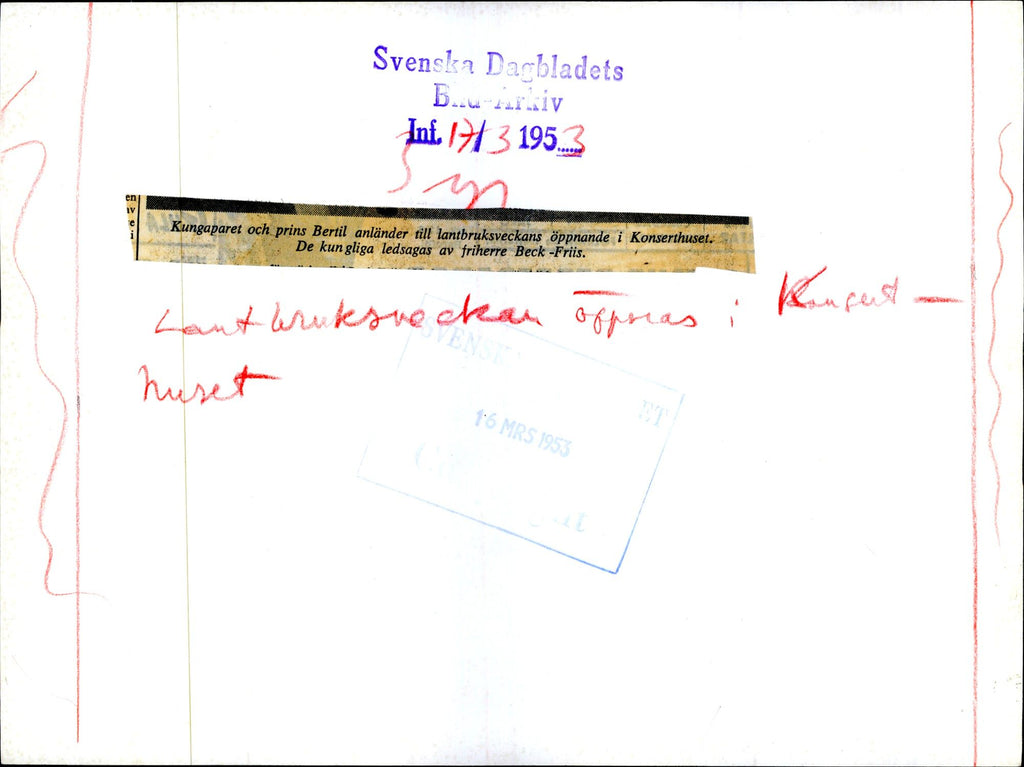 Svenska Dagbladets
Bild-Arkiv
Inf. 17/3 1953
en
av
e
i
Kungaparet och prins Bertil anländer till lantbruksveckans öppnande i Konserthuset.
De kungliga ledsagas av friherre Beck-Friis.
Lantbruksveckan öppnas i Konsert-
huset
SVENSK
ET
16 MRS 1953